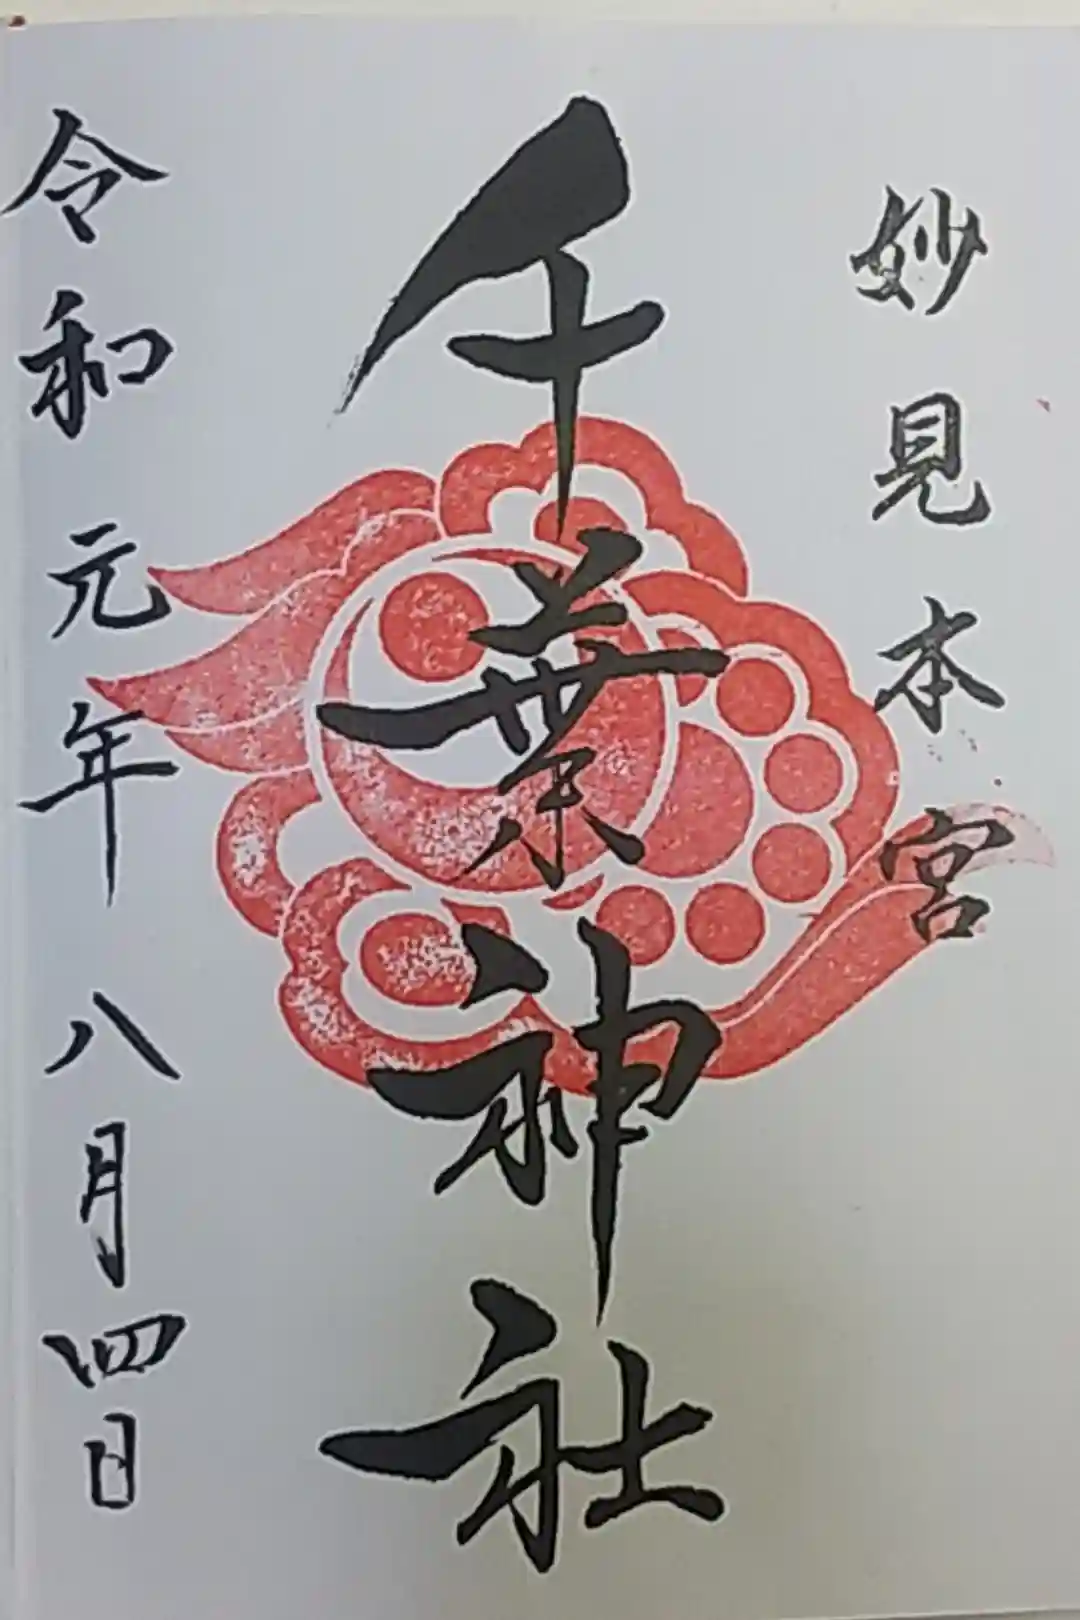 妙見本宮
千葉神社
令和元年八月四日